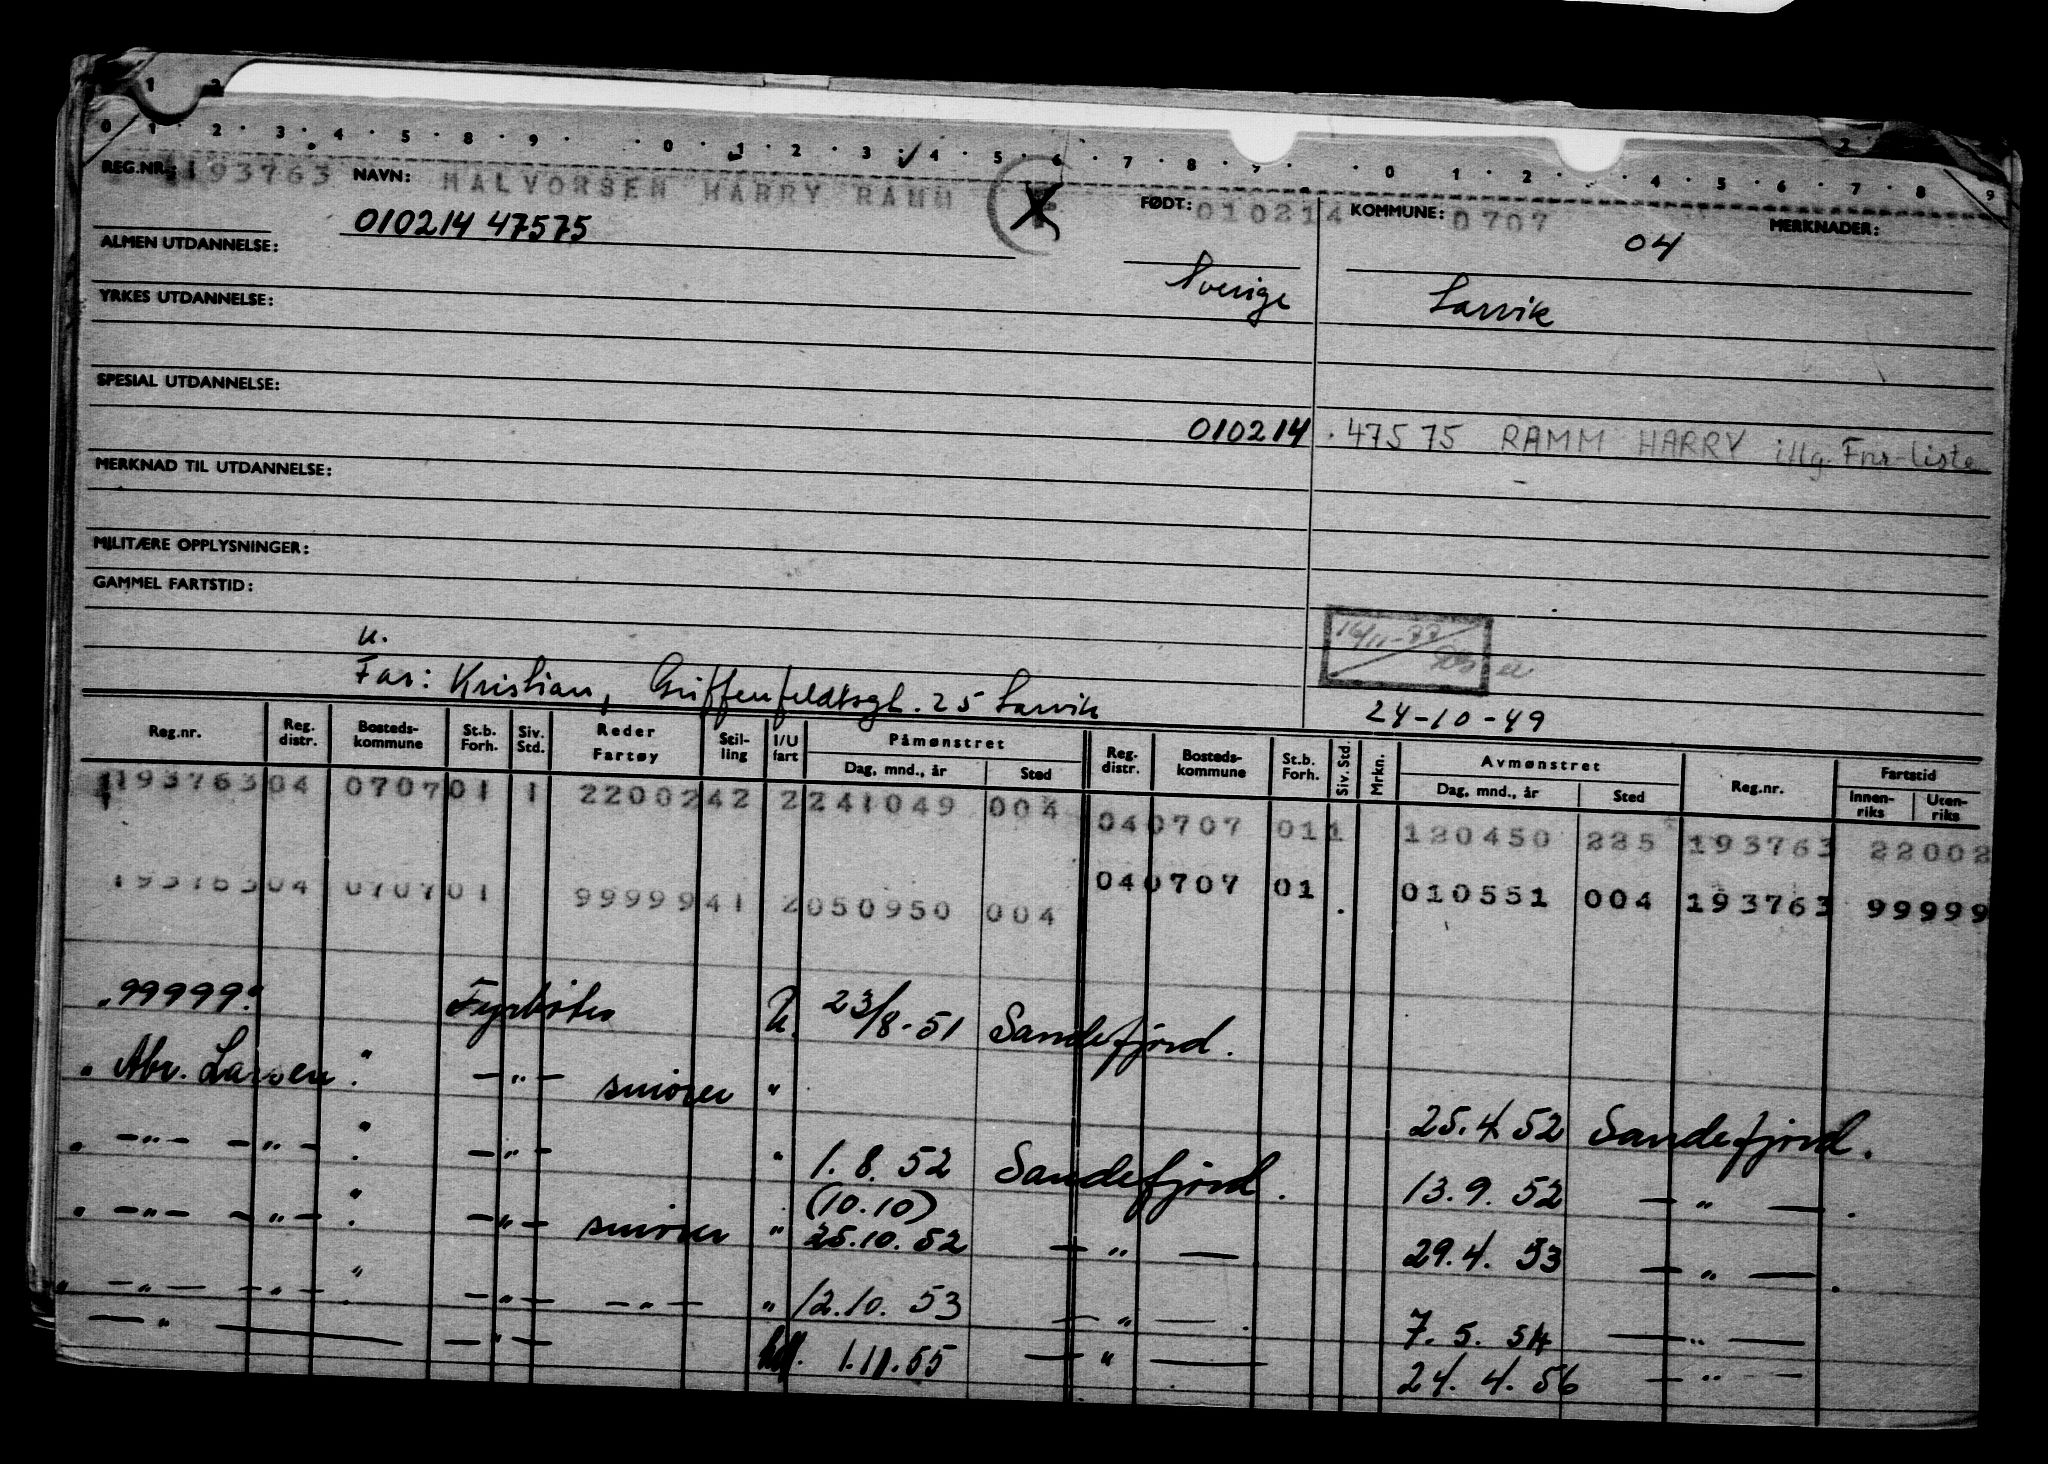 1 2
0 1 2 3 4 5 8 9 0 1 2 3 4 5 6 7 8 0 1 2 4 5 6 7 8 9
REG.NR.: 193763 NAVN: HALVORSEN HARRY RAMM FØDT: 010214 KOMMUNE: 0707 MERKNADER:
010214 47575 04
ALMEN UTDANNELSE:
Sverige Larvik
YRKES UTDANNELSE:
SPESIAL UTDANNELSE:
010214 . 47575 RAMM HARRY illg. Fnr-liste
MERKNAD TIL UTDANNELSE:
MILITÆRE OPPLYSNINGER:
GAMMEL FARTSTID:
16/11-77
u.
Far: Kristian, Griffenfeldtsgt. 25 Larvik
24-10-49
Reg.nr. Reg. distr. Bosteds-kommune St.b. Forh. Siv. Std. Reder Fartøy Stil-ling I/U fart Påmønstret Dag, mnd., år Sted Reg. distr. Bosteds-kommune St.b. Forh. Siv. Std. Mrkn. Avmønstret Dag, mnd., år Sted Reg.nr. Fartstid Innen-riks Uten-riks
193763 04 0707 01 1 22002 42 2 241049 004 04 0707 01 1 120450 225 193763 22002
193763 04 0707 01 99999 41 2 050950 004 04 0707 01 . 010551 004 193763 99999
"99999" Fyrbøter U. 23/8-51 Sandefjord.
" Abr. Larsen " — " — smører " 25.4.52 Sandefjord.
" — " — — " — " — " — " 1.8.52 Sandefjord. 13.9.52 — " — .
(10.10)
" — " — — " — " — " — smører " 25.10.52 — " — 29.4.53 — " — .
" — " — — " — " — " — — " — " 12.10.53 — " — . 7.5.54 — " —
— " — — " — 1.11.55 — " — 24.4.56 — " —